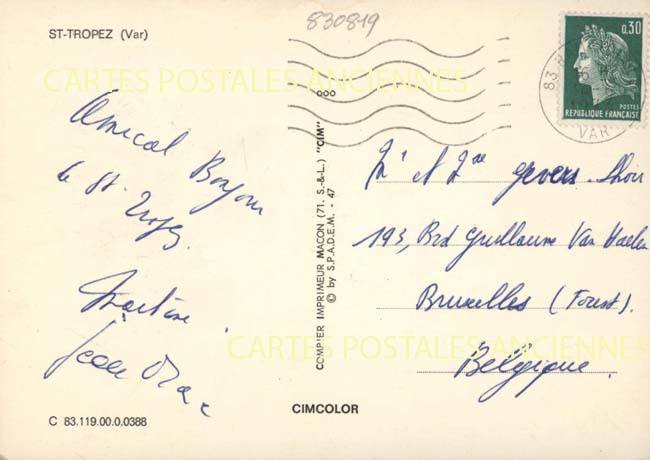 830819
ST-TROPEZ (Var)
0,30
POSTES
REPUBLIQUE FRANÇAISE
83
VAR
CARTES POSTALES ANCIENNES
Amical Bonjour
de St Tropez
Martine
Jean Marc
COMBIER IMPRIMEUR MACON (71. S.-&-L.) "CIM"
© by S.P.A.D.E.M. - 47
Mr et Mme Gevers
193, Brd Guillaume Van Haelen
Bruxelles (Forest).
Belgique.
CARTES POSTALES ANCIENNES
CIMCOLOR
C 83.119.00.0.0388